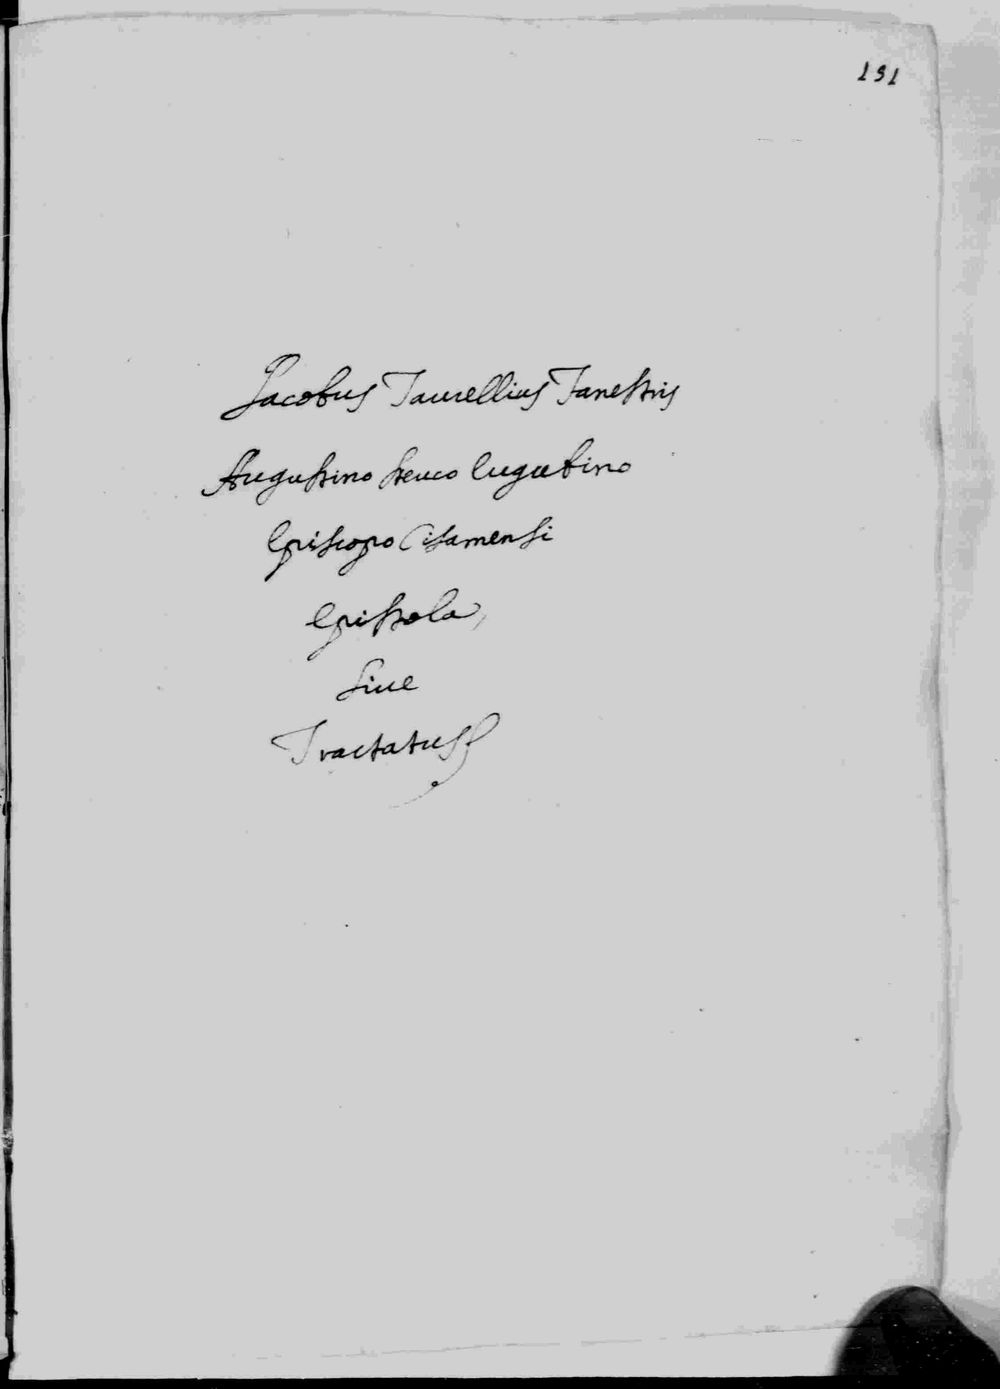 131
Jacobus Taurellius Fanestris
Augustino Steuco Eugubino
Episcopo Cisamensi
Epistola,
siue
Tractatus